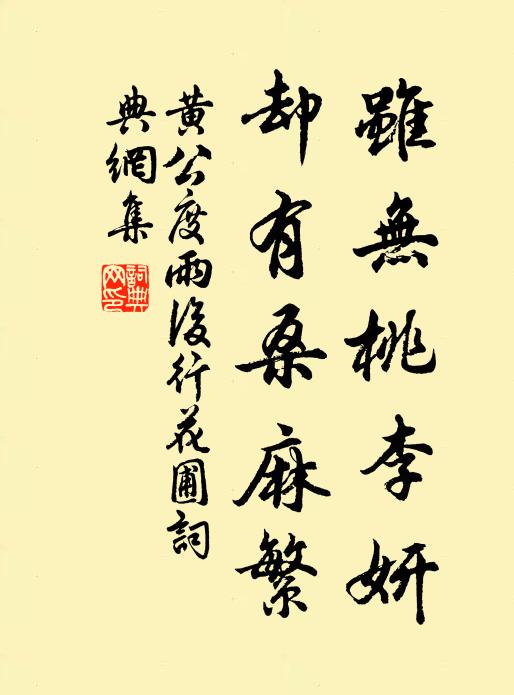 雖無桃李妍
却有桑麻繁
黄公度雨後行花圃詞
典網集
詞典
网印